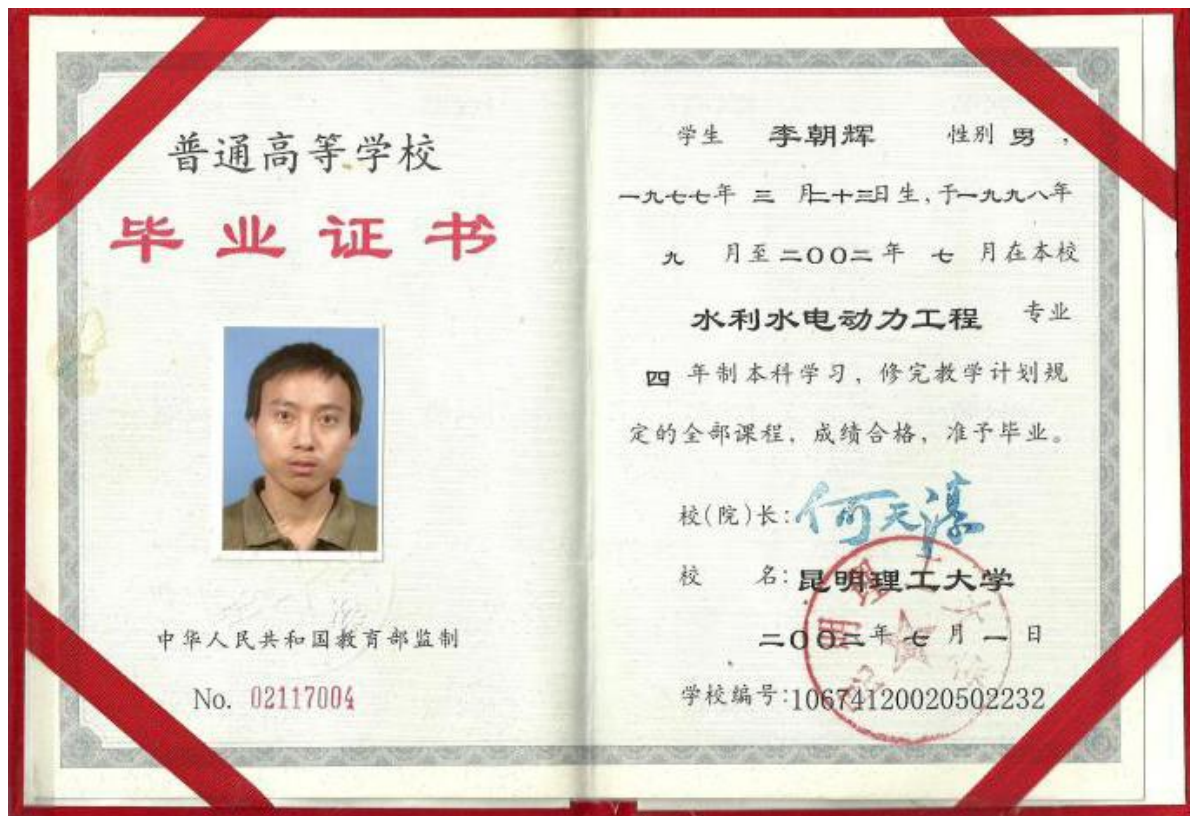 普通高等学校
毕业证书
中华人民共和国教育部监制
No. 02117004
学生 李朝辉 性别 男，
一九七七年 三 月二十三日生，于一九九八年
九 月至二〇〇二年 七 月在本校
水利水电动力工程 专业
四 年制本科学习，修完教学计划规
定的全部课程，成绩合格，准予毕业。
校(院)长:何天淳
校 名:昆明理工大学
二〇〇二年七月一日
学校编号:10674120020502232